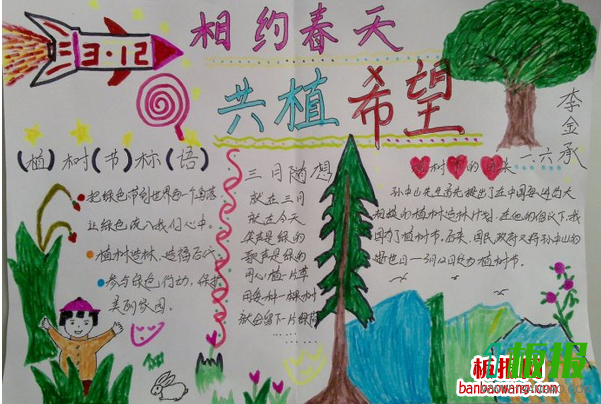 3·12
相约春天
共植希望
李金承
一.六
(植)树(节)标(语)
把绿色带到世界每一个角落
让绿色成入我们心中。
植树造林，造福后代
参与绿色行动，保护
美丽家园。
三月随想
就在三月
就在今天
笑声是绿的
歌声是绿的
用心植一片草
用爱种一棵树
就会留下一片绿荫
……
植树节的由来
孙中山先生首先提出了在中国
规模的植树造林计划，在他的倡议下，我
国有了植树节。后来，国民政府又将孙中山的
逝世日—3月12日定为植树节。
板报网
banbaowang.com
板报